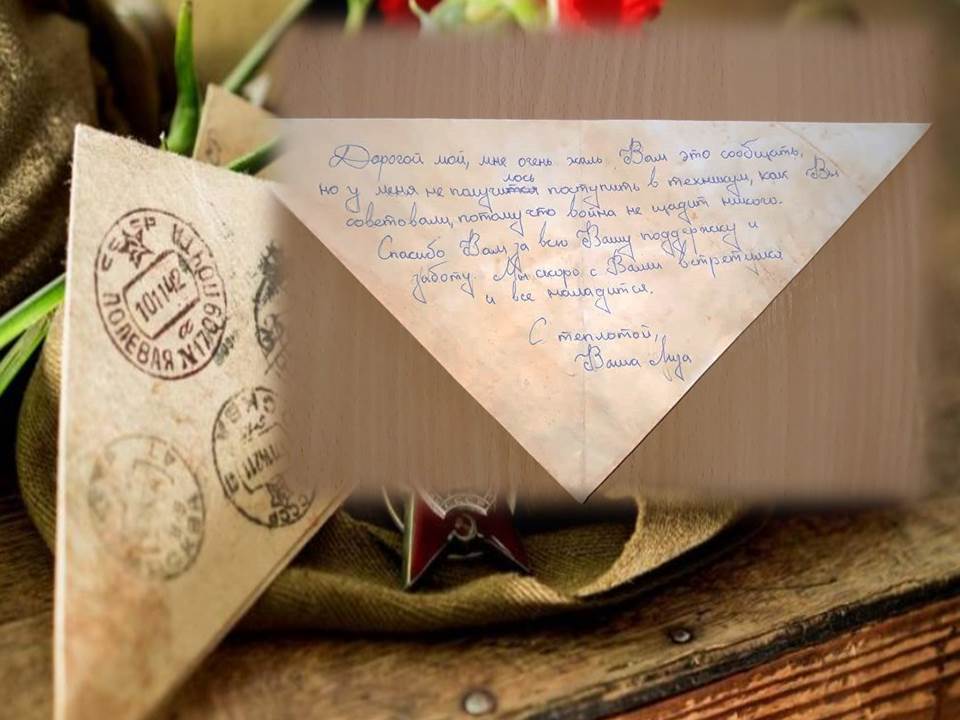 Дорогой мой, мне очень жаль Вам это сообщать,
лось
но у меня не получится поступить в техникум, как Вы
советовали, потому что война не щадит никого.
Спасибо Вам за всю Вашу поддержку и
заботу. Мы скоро с Вами встретимся
и все наладится.
С теплотой,
Ваша Луза
СССР
101142
ПОЛЕВАЯ
СССР